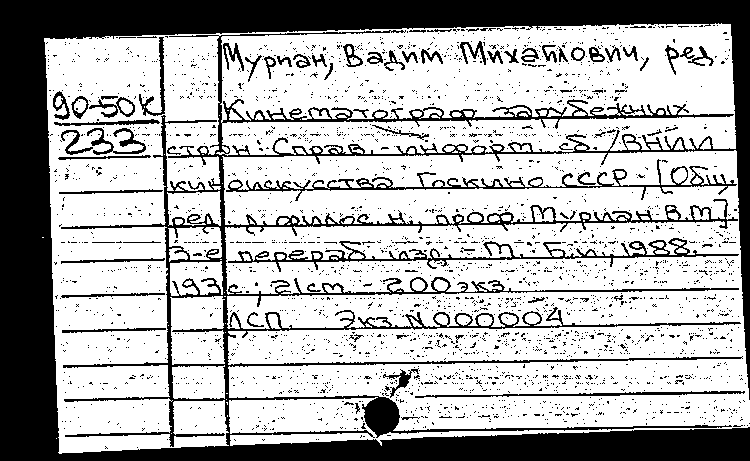 Муриан, Вадим Михайлович, ред.
90-50к
Кинематограф зарубежных
233
стран: Справ.-информ. сб. / ВНИИ
киноискусства Госкино СССР; [Общ.
ред. д. филос. н., проф. Муриан В.М.]
3-е перераб. изд. - М.: Б.и., 1988.-
193 с.; 21 см. - 200 экз.
ДСП. Экз. N 000004.